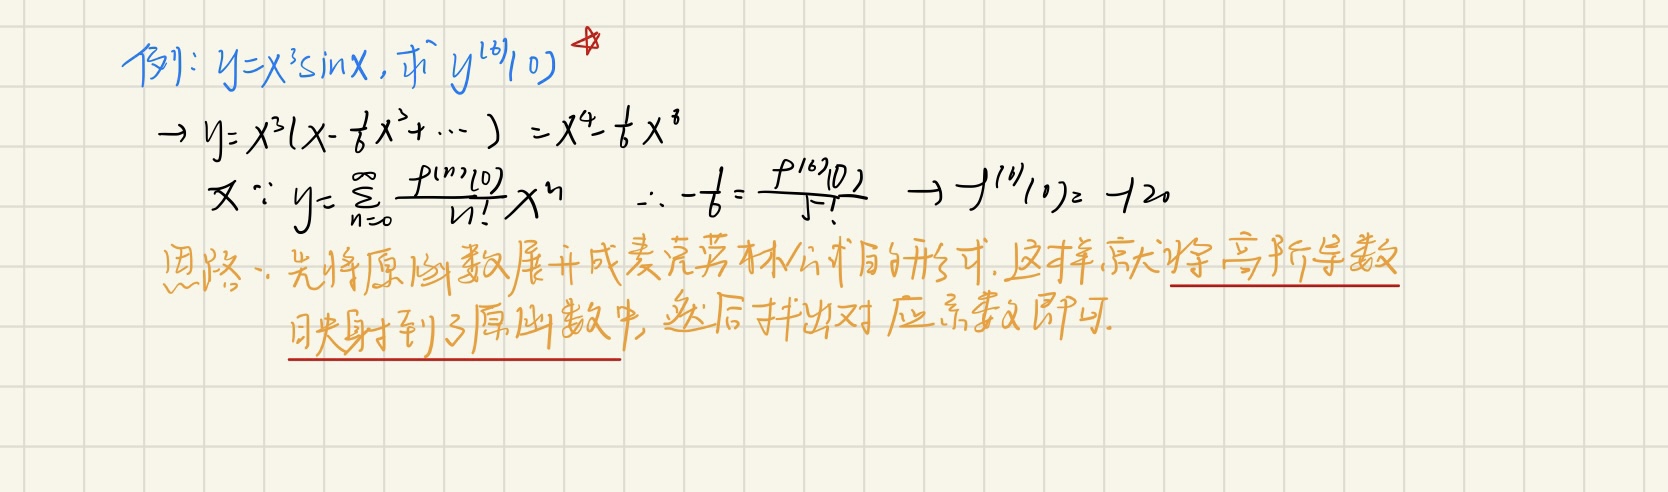 例: y=x³sinx, 求 y⁽⁶⁾(0) ☆
→ y=x³(x-1/6x³+⋯) =x⁴-1/6x⁶
又∵ y=∑_{n=0}^{∞} f⁽ⁿ⁾(0)/n! xⁿ ∴ -1/6 = f⁽⁶⁾(0)/5! → f⁽⁶⁾(0)= -120
思路: 先将原函数展开成麦克劳林公式的形式. 这样就将高阶导数
映射到了原函数中, 然后找出对应系数即可.